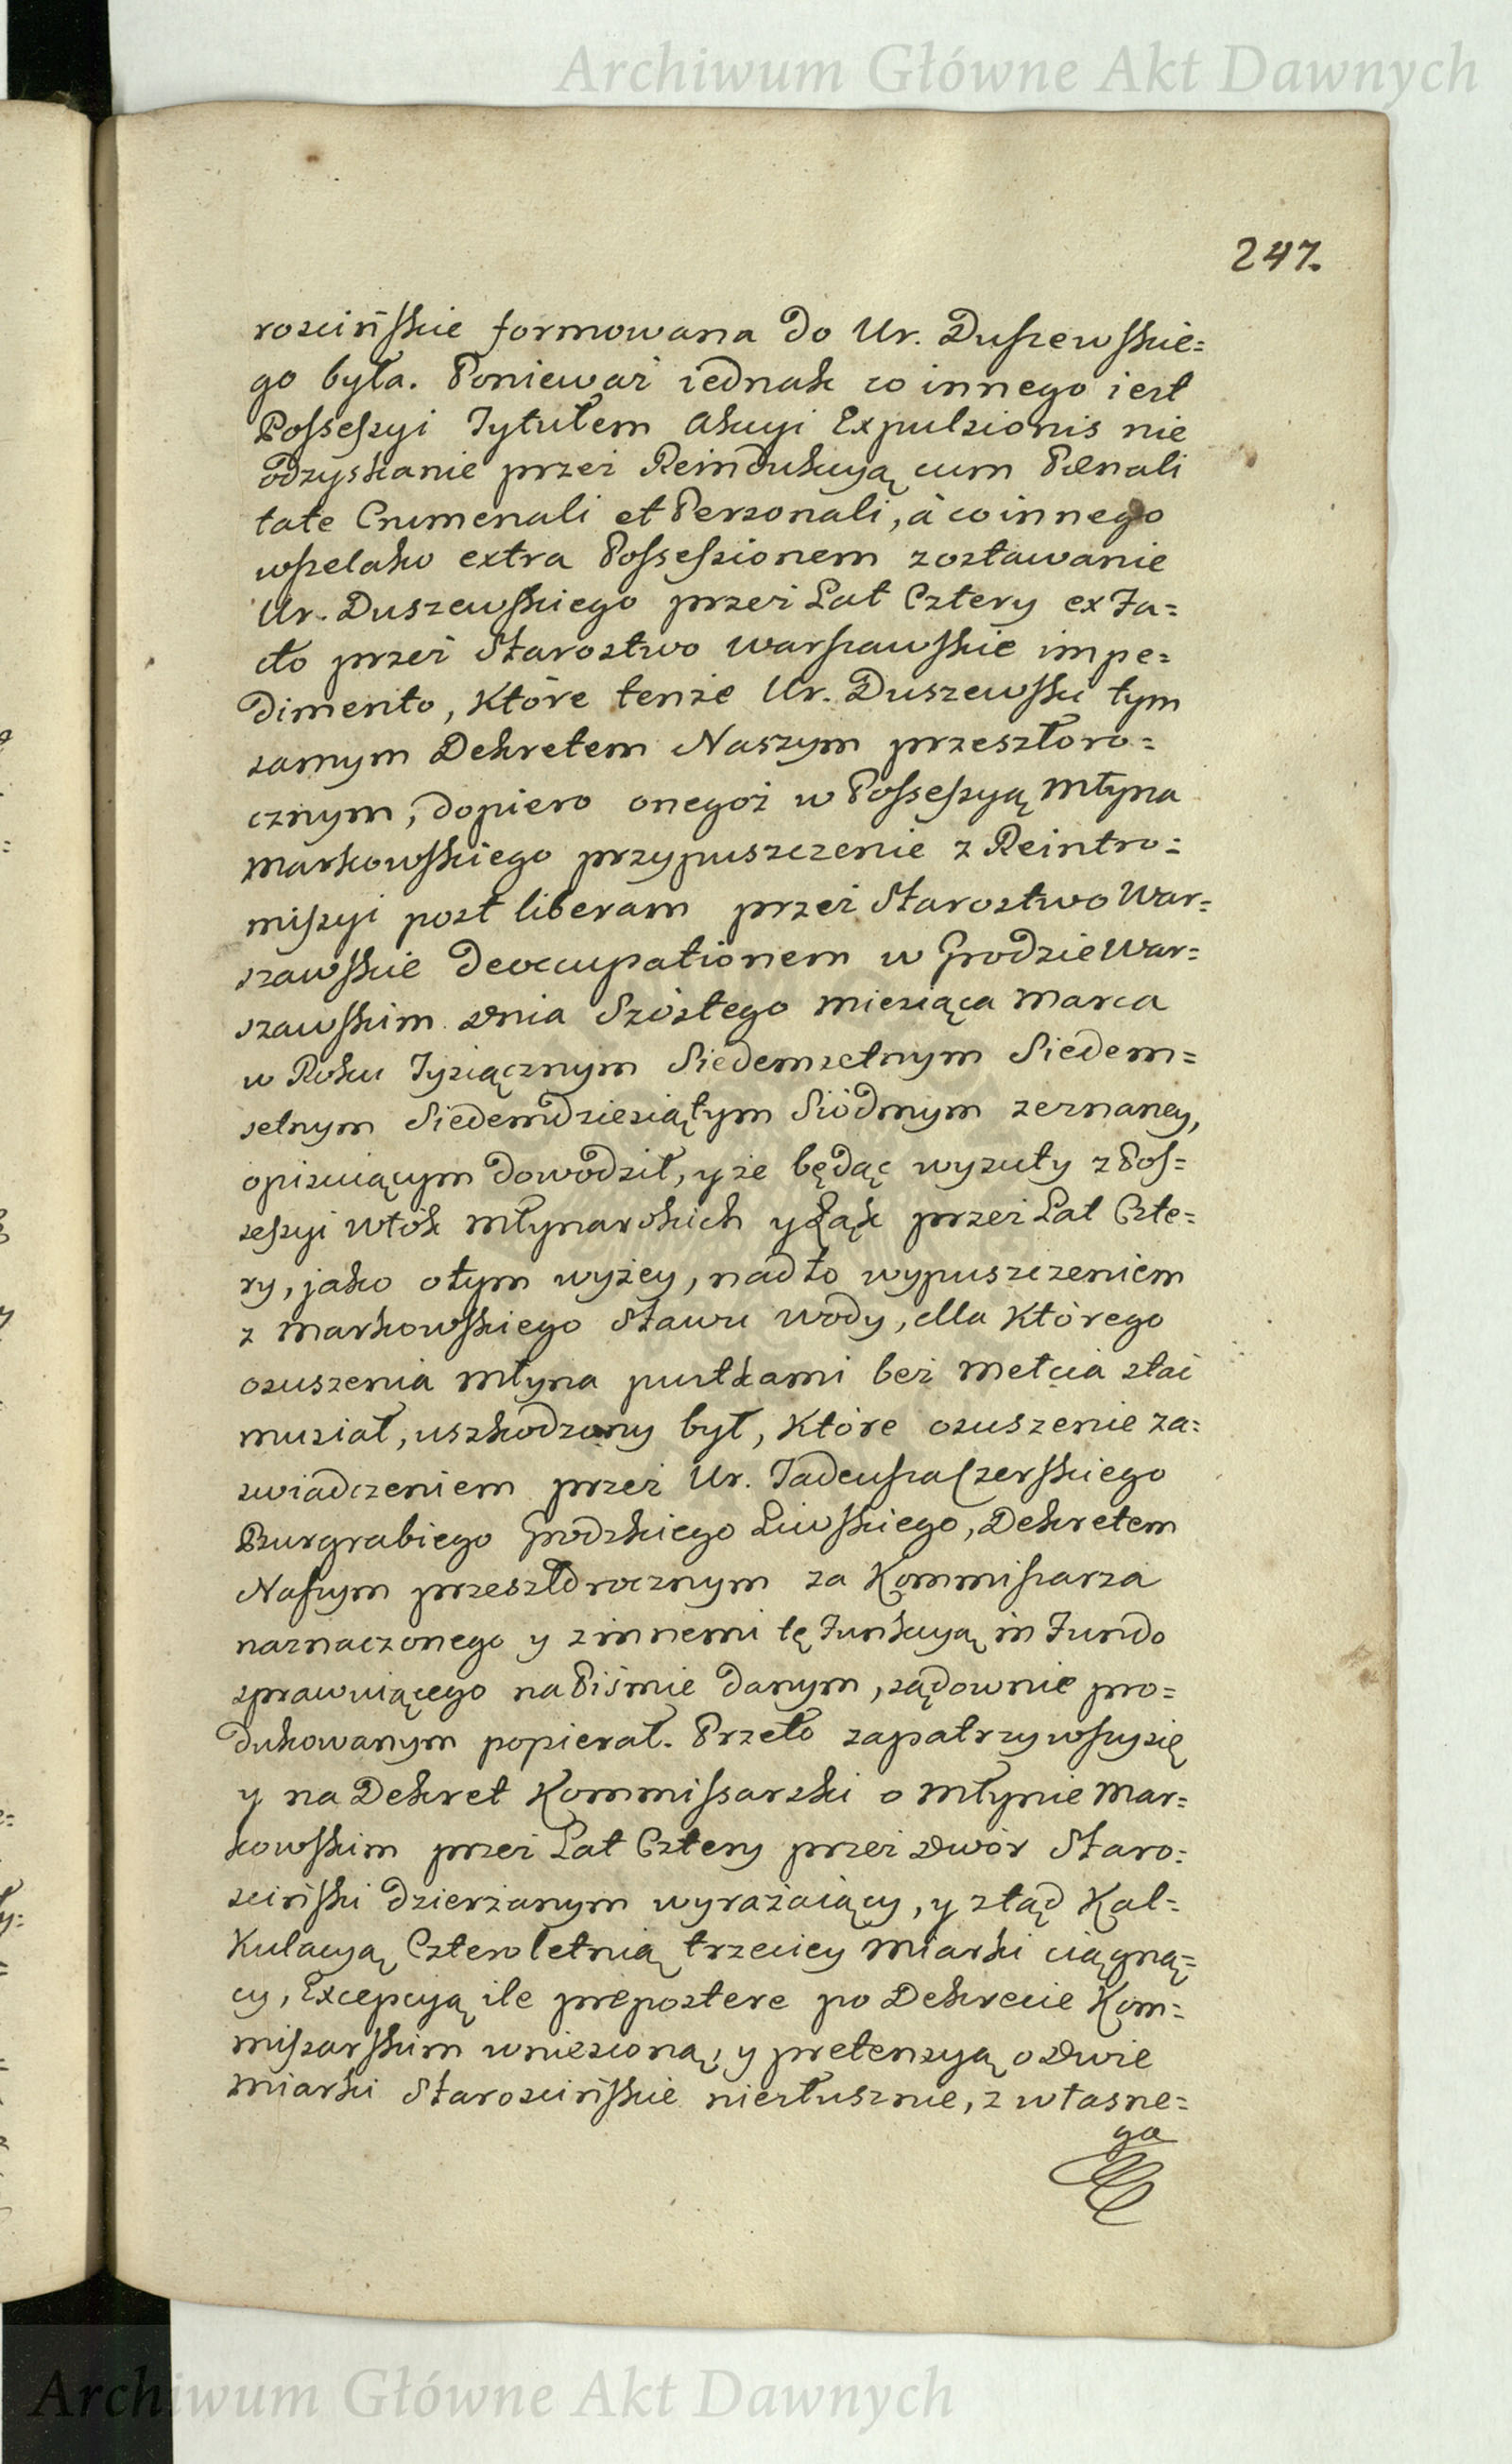 Archiwum Główne Akt Dawnych
247.
rościńskie formowana do Ur. Duszewskie=
go była. Ponieważ iednak co innego iest
Possessyi Tytułem Akcyi Expulsionis nie
odzyskanie przez Reindukcyą cum Pœnali
tate Crumenali et Personali, à co innego
wszelako extra Possessionem zostawanie
Ur. Duszewskiego przez Lat Cztery ex Fa=
cto przez Starostwo Warszawskie impe=
dimento, Które tenże Ur. Duszewski tym
samym Dekretem Naszym przeszłoro=
cznym, dopiero onegoż w Possessyą Młyna
Markowskiego przypuszczenie z Reintro=
missyi post liberam przez Starostwo War=
szawskie deoccupationem w Grodzie War=
szawskim Dnia Szóstego Miesiąca Marca
w Roku Tysiącznym Siedemsetnym Siedem=
setnym Siedemdziesiątym Siódmym zeznaney,
opisuiącym dowodził, y że będąc wyzuty z Pos=
sessyi Włók Młynarskich y Łąk przez Lat Czte=
ry, jako o tym wyżey, nadto wypuszczeniem
z Markowskiego Stawu wody, dla Którego
osuszenia Młyna pustkami bez Mełcia stać
musiał, uszkodzony był, Które osuszenie za=
swiadczeniem przez Ur. Tadeusza Czerskiego
Burgrabiego Grodzkiego Liwskiego, Dekretem
Naszym przeszłorocznym za Kommissarza
naznaczonego y z innemi tę Funkcyą in Fundo
sprawuiącego na Piśmie danym, sądownie pro=
dukowanym popierał. Przeto zapatrzywszy się
y na Dekret Kommissarski o Młynie Mar=
kowskim przez Lat Cztery przez Dwór Staro=
sciński dzierżanym wyrażaiący, y ztąd Kal=
Kulacyą Czteroletnią trzeciey Miarki ciągną=
cy, Excepcyą ile prepostere po Dekrecie Kom=
missarskim wniesioną, y pretensyą o Dwie
Miarki Starościńskie niesłusznie, z własne=
go
Archiwum Główne Akt Dawnych